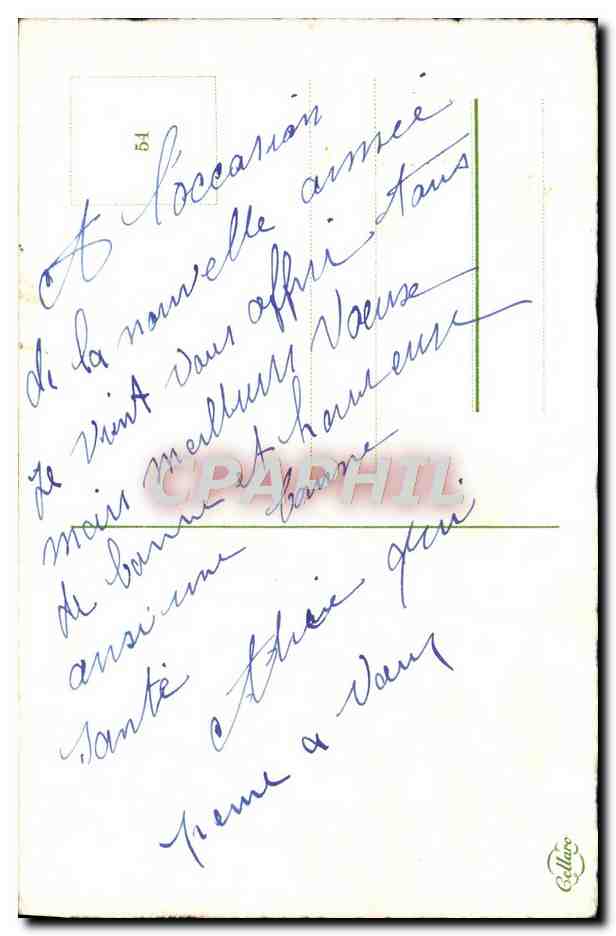 54
A l'occasion
de la nouvelle année
Je vient vous offrir tous
mais meilleurs Voeuse
de bonne et heureuse
ansi une bonne
santé
pense a Vous
CPARPHIL
Cellaro